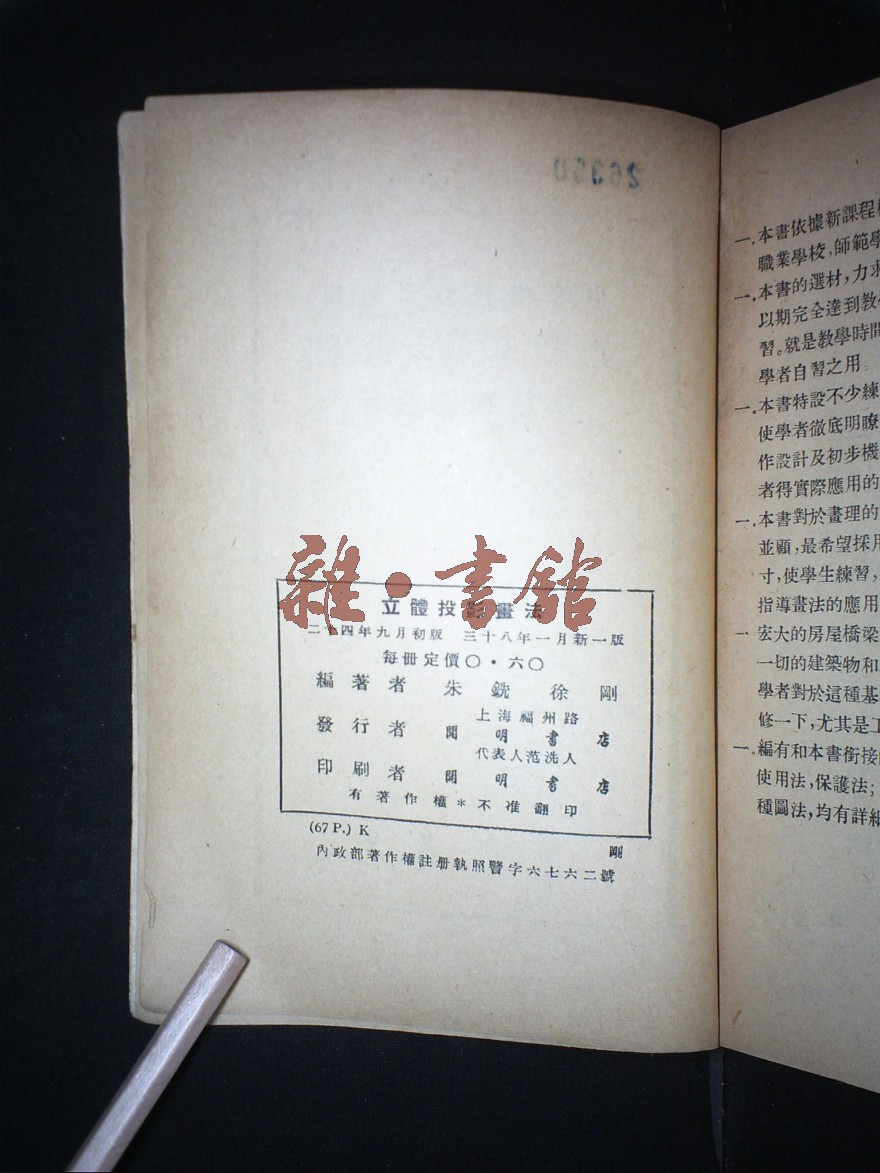 26350
雜·書舘
立體投影畫法
二十四年九月初版 三十八年一月新一版
每冊定價〇·六〇
編著者 朱銑 徐剛
發行者 上海福州路
開明書店
代表人范洗人
印刷者 開明書店
有著作權*不准翻印
(67 P.) K 剛
內政部著作權註册執照警字六七六二號
一.本書依據新課程
職業學校,師範學
一.本書的選材,力求
以期完全達到教
習。就是教學時間
學者自習之用
一.本書特設不少練
使學者徹底明瞭
作設計及初步機
者得實際應用的
一.本書對於畫理的
並顧,最希望採用
寸,使學生練習,
指導畫法的應用
一 宏大的房屋橋梁
一切的建築物和
學者對於這種基
修一下,尤其是
一。編有和本書銜接
使用法,保護法;
種圖法,均有詳細